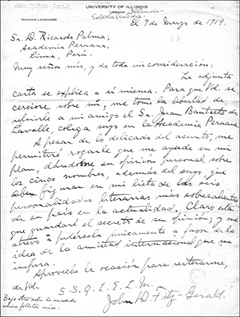 UNIVERSITY OF ILLINOIS
URBANA, Illinois
Estados Unidos
ROMANCE LANGUAGES
El 7 de Marzo de 1919.
Sr. D. Ricardo Palma,
Academia Peruana,
Lima, Perú.
Muy señor mío, y de toda mi consideración:
La adjunta
carta se explica a sí misma. Para que Vd. se
cerciore sobre mí, me tomo la libertad de
referirle a mi amigo el Sr. Juan Bautista de
Lavalle, colega suyo en la Academia Peruana.
A pesar de lo delicado del asunto, me
permitiré rogarle que me ayude en mi
plan, dándome su opinión personal sobre
los cinco nombres, además del suyo, que
deben figurar en mi lista de las seis
personalidades literarias más sobresalientes
de su país en la actualidad. Claro está
que guardaré el secreto de su opinión, y me
atrevo a pedírsela únicamente a favor de la
idea de la amistad internacional que me
inspira.
Aprovecho la ocasión para reiterarme,
de Vd.
S. S. Q. L. E. L. M.
John D. Fitz-Gerald.